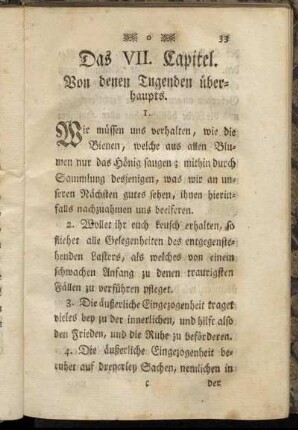 o 33
Das VII. Capitel.
Von denen Tugenden über-
haupts.
1.
Wir müssen uns verhalten, wie die
Bienen, welche aus allen Blu-
men nur das Hönig saugen; mithin durch
Sammlung desjenigen, was wir an un-
seren Nächsten gutes sehen, ihnen hierin-
falls nachzuahmen uns beeiferen.
2. Wollet ihr euch keusch erhalten, so
fliehet alle Gelegenheiten des entgegenste-
henden Lasters, als welches von einem
schwachen Anfang zu denen traurigsten
Fällen zu verführen pfleget.
3. Die äußerliche Eingezogenheit traget
vieles bey zu der innerlichen, und hilft also
den Frieden, und die Ruhe zu beförderen.
4. Die äußerliche Eingezogenheit be-
ruhet auf dreyerley Sachen, nemlichen in
c der